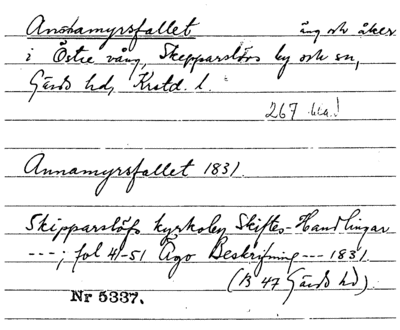 Annamyrsfallet äng och åker
i Östre vång, Skepparslövs by och sn,
Gärds hd, Krstd. l.
267 bl a.
Annamyrsfallet 1831.
Skipparslöfs kyrkoby Skiftes-Handlingar
---; fol 41-51 Ägo Beskrifning --- 1831.
(B 47 Gärds hd)
Nr 5337.